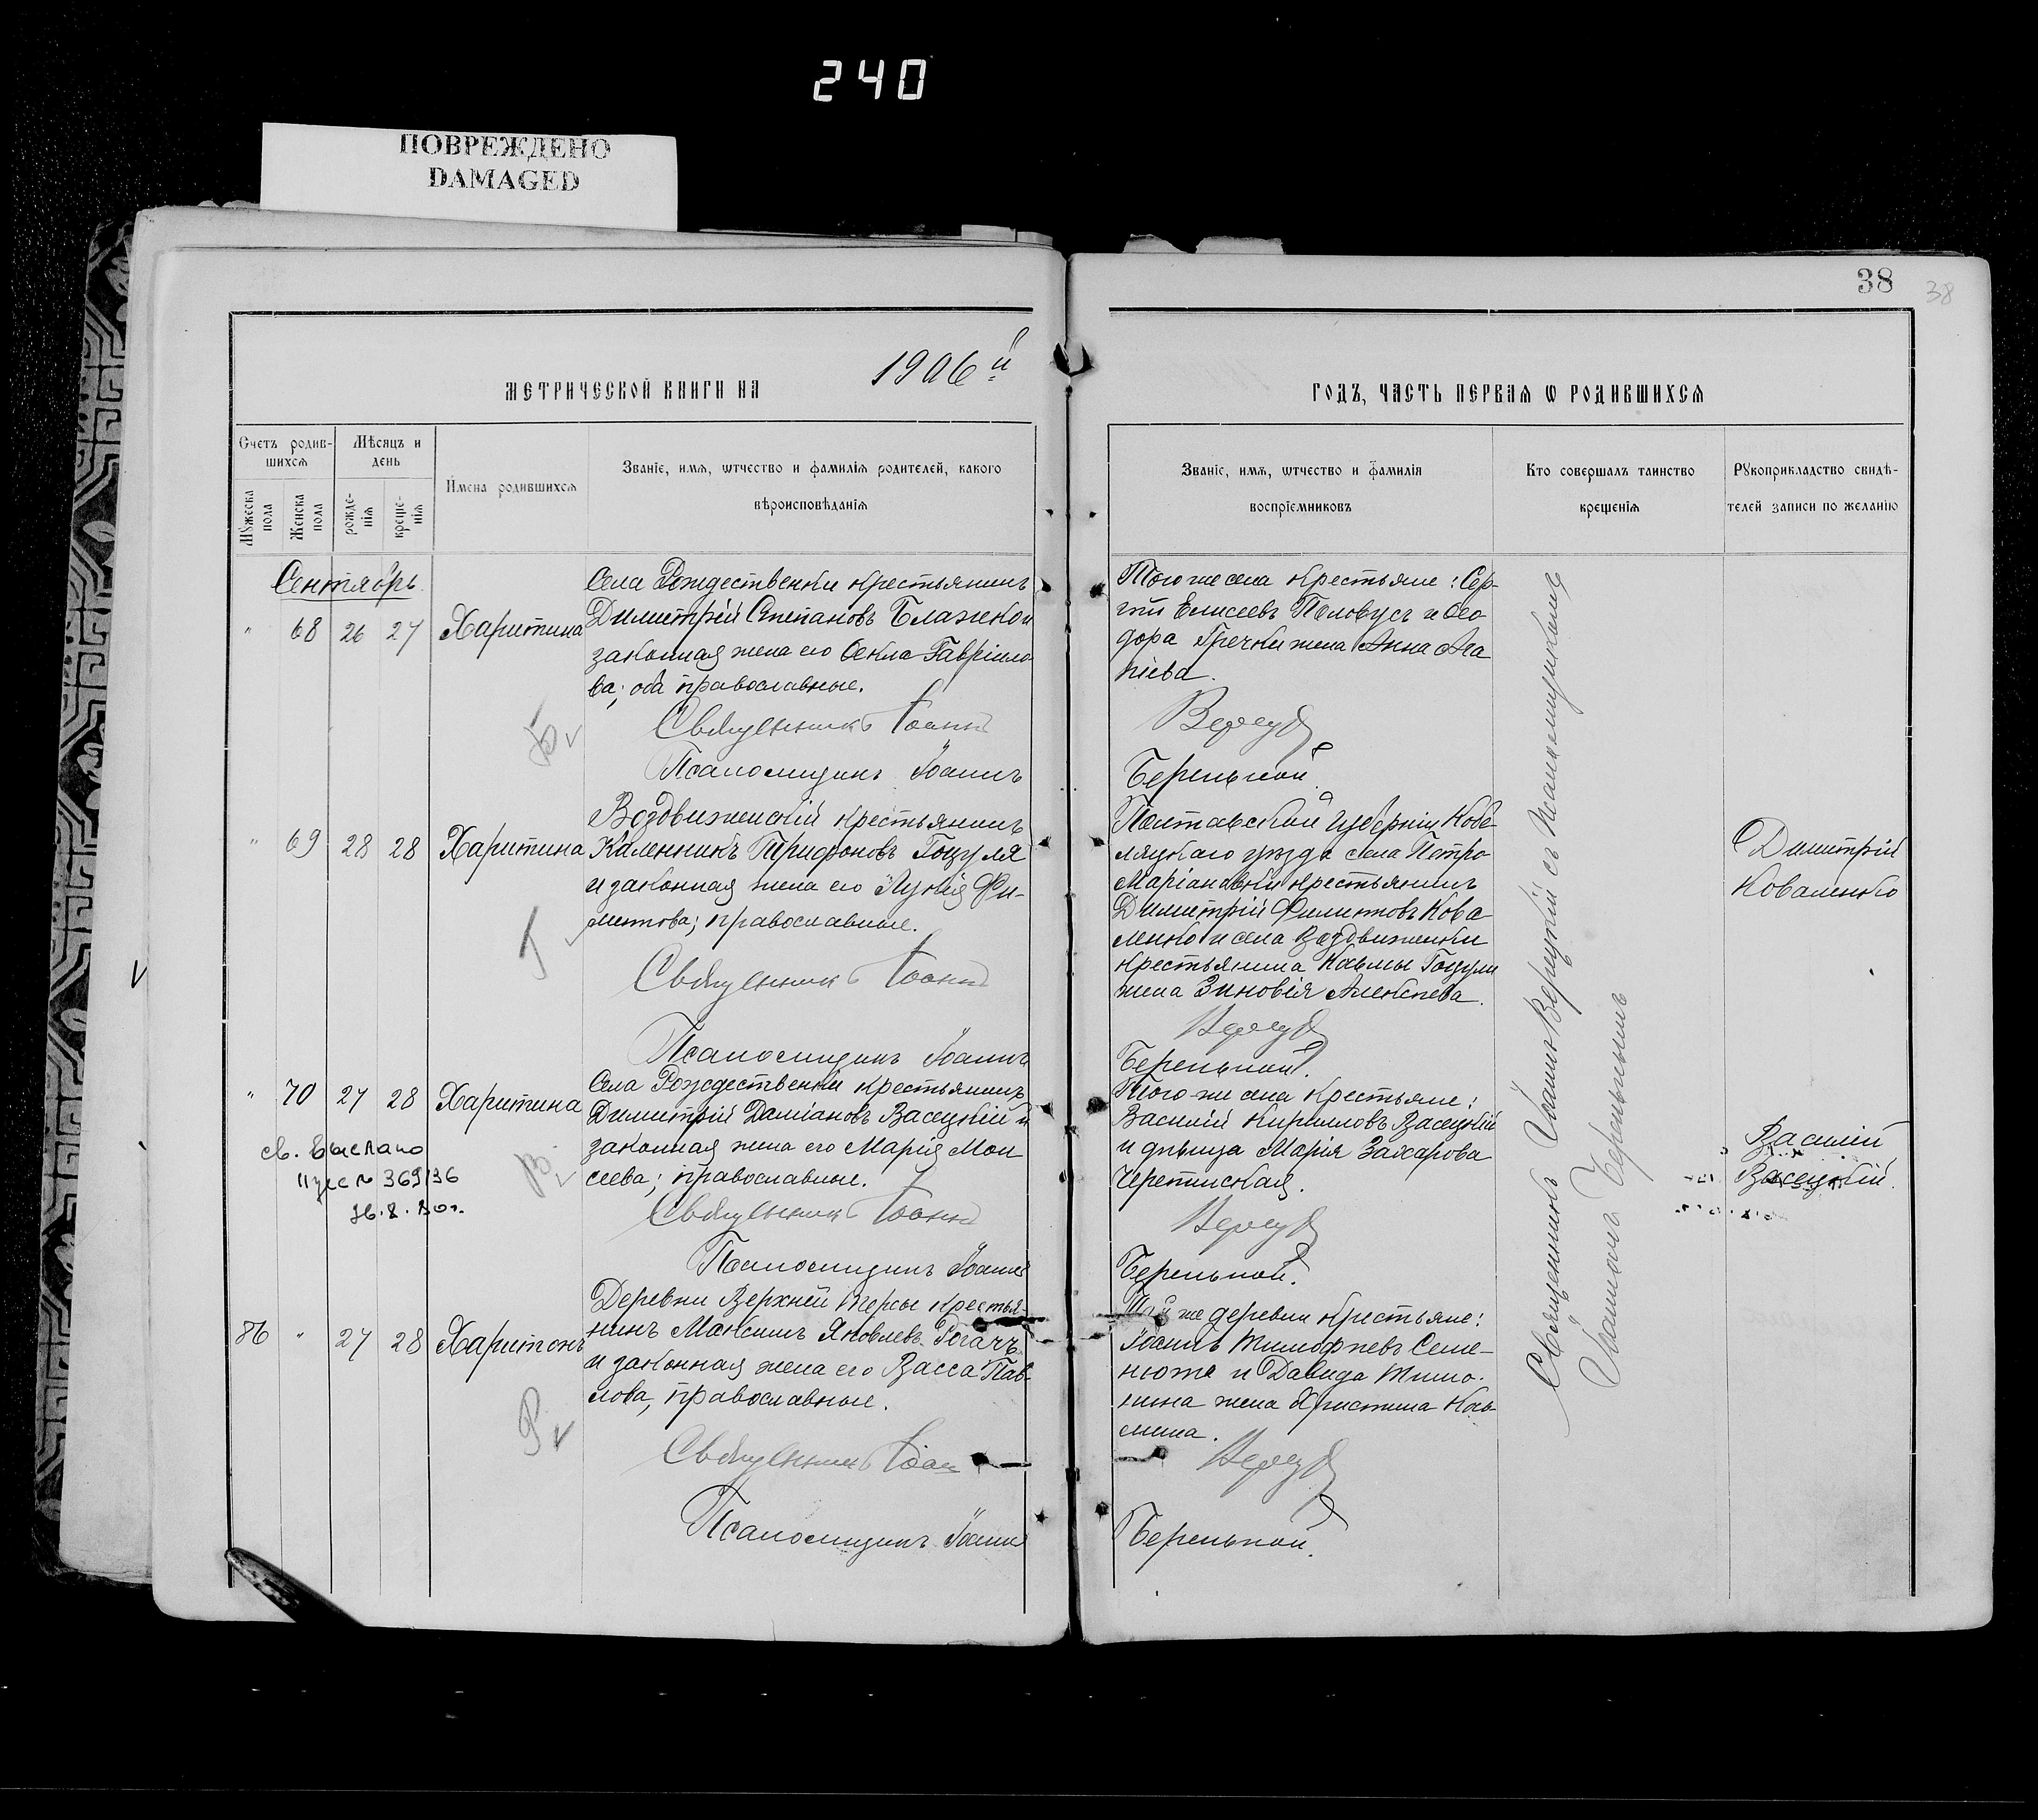 240
ПОВРЕЖДЕНО
DAMAGED
38
38
МЕТРИЧЕСКОЙ КНИГИ НА 1906й
ГОДЪ, ЧАСТЬ ПЕРВАѦ Ѡ РОДИВШИХСѦ
Счетъ родив-
шихсѧ
Мѣсяцъ и
день
Мꙋжеска
пола
Женска
пола
рожде-
нїѧ
креще-
нїѧ
Имена родившихсѧ
Званїе, имѧ, ѡтчество и фамилїѧ родителей, какого
вѣроисповѣданїѧ
Званїе, имѧ, ѡтчество и фамилїѧ
воспрїемниковъ
Кто совершалъ таинство
крещенїѧ
Рꙋкоприкладство свидѣ-
телей записи по желанїю
Сентябрь
" 68 26 27 Харитина
Села Рождественки крестьянинъ
Димитрій Степановъ Блажко и
законная жена его Ѳекла Гавріило-
ва; оба православные.
Священникъ Іоаннъ
Псаломщикъ Іоаннъ
Того же села крестьяне: Сер-
гій Елисеевъ Половусъ и Ѳео
дора Гречки жена Анна Ага
піева.
Верецк
Беренной
Б
" 69 28 28 Харитина
Воздвиженскій крестьянинъ
Каленникъ Трифоновъ Гоцуля
и законная жена его Лукія Фи-
липова; православные.
Священникъ Іоаннъ
Псаломщикъ Іоаннъ
Полтавской губерніи Кобе-
ляцкаго уѣзда села Петро-
Маріановки крестьянинъ
Димитрій Филиповъ Кова
ленко и села Воздвиженки
крестьянина Козьмы Гоцули
жена Зиновія Алексѣева.
Димитрій
Коваленко
Г
" 70 27 28 Харитина
св. выслано
369/36
Села Рождественки крестьянинъ
Димитрій Даміановъ Васецкій и
законная жена его Марія Мои
сеева; православные.
Священникъ Іоаннъ
Псаломщикъ Іоаннъ
Того-же села крестьяне:
Василій Кирилловъ Васецкій
и дѣвица Марія Захарова
Черепинская.
Василій
Васецкій.
В
86 " 27 28 Харитонъ
Деревни Верхней Терсы крестья-
нинъ Максимъ Яковлевъ Рогачъ
и законная жена его Васса Пав-
лова, православные.
Священникъ Іоан
Псаломщикъ Іоаннъ
Той же деревни крестьяне:
Іоаннъ Тимофѣевъ Семе-
нюта и Давида Тимо-
нина жена Христина Козь-
мина.
Р
Священникъ Іоаннъ Верецкій съ Псаломщикомъ
Іоанномъ